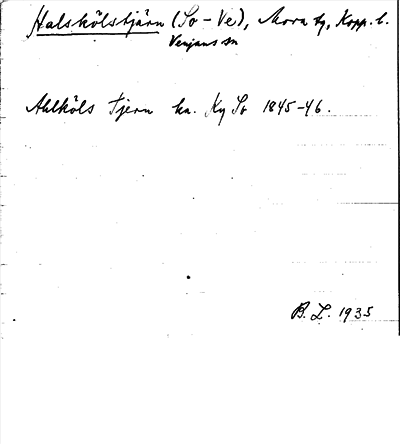 Halskölstjärn (So-Ve), Mora tg, Kopp. l.
Venjans sn
Ahlköls Tjern ka. Ky So 1845-46.
B. L. 1935